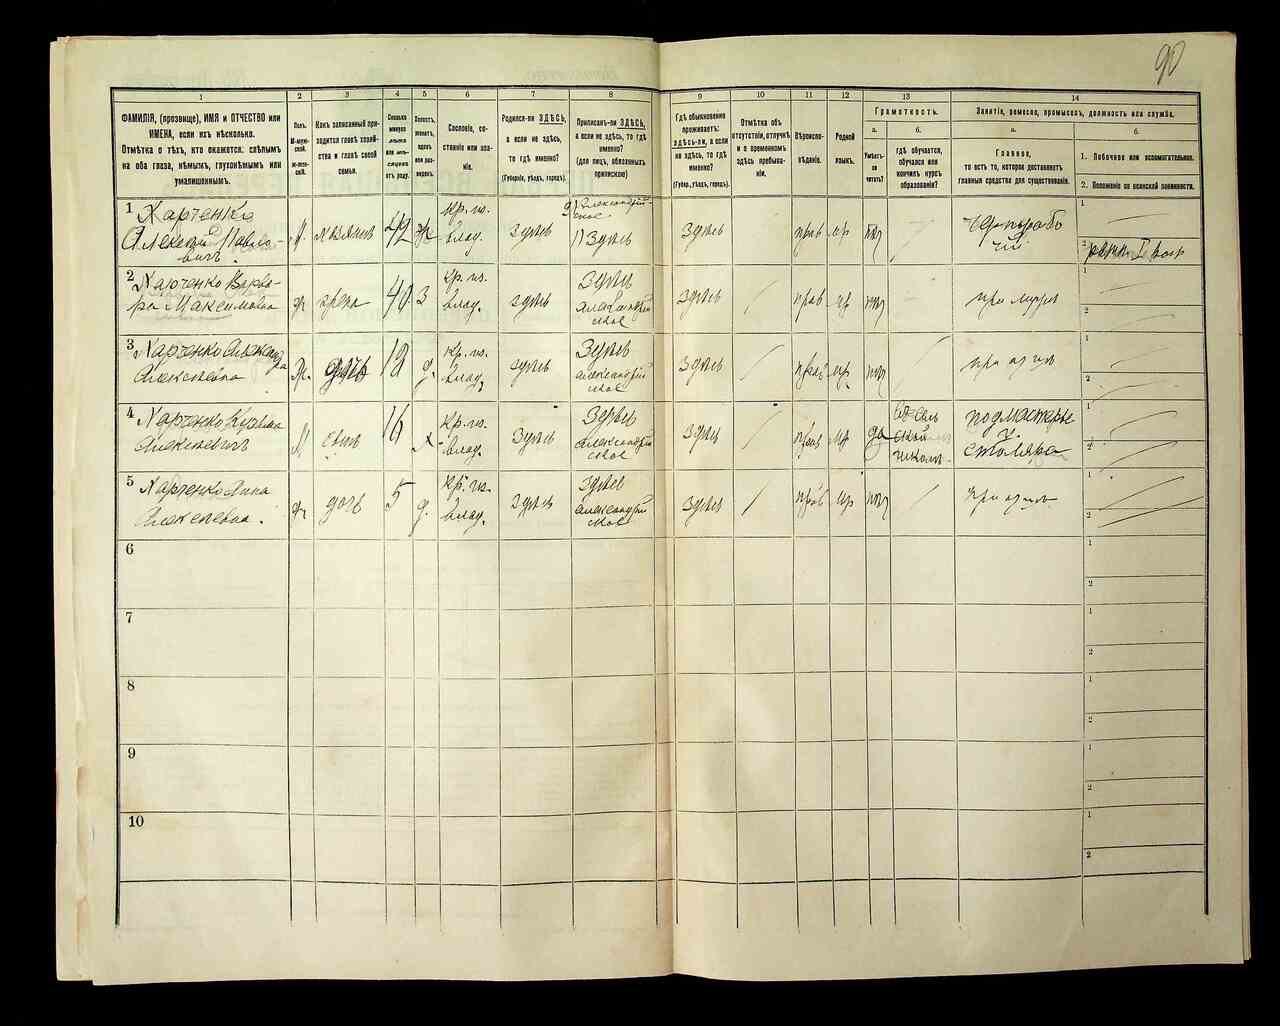 90
1 2 3 4 5 6 7 8 9 10 11 12 13 14
ФАМИЛІЯ, (прозвище), ИМЯ и ОТЧЕСТВО или
ИМЕНА, если ихъ нѣсколько.
Отмѣтка о тѣхъ, кто окажется: слѣпымъ
на оба глаза, нѣмымъ, глухонѣмымъ или
умалишеннымъ.
Полъ.
М-муж-
ской.
Ж-жен-
скій.
Какъ записанный при-
ходится главѣ хозяй-
ства и главѣ своей
семьи.
Сколько
минуло
лѣтъ
или мѣ-
сяцевъ
отъ роду.
Холостъ,
женатъ,
вдовъ
или раз-
веденъ.
Сословіе, со-
стояніе или зва-
ніе.
Родился-ли ЗДѢСЬ,
а если не здѣсь,
то гдѣ именно?
(Губернія, уѣздъ, городъ).
Приписанъ-ли ЗДѢСЬ,
а если не здѣсь, то гдѣ
именно?
(для лицъ, обязанныхъ
припискою)
Гдѣ обыкновенно
проживаетъ:
здѣсь-ли, а если
не здѣсь, то гдѣ
именно?
(Губер., уѣздъ, городъ).
Отмѣтка объ
отсутствіи, отлучкѣ
и о временномъ
здѣсь пребыва-
ніи.
Вѣроиспо-
вѣданіе.
Родной
языкъ.
Грамотность.
а. б.
Умѣетъ-
ли
читать?
гдѣ обучается,
обучался или
кончилъ курсъ
образованія?
Занятіе, ремесло, промыселъ, должность или служба.
а. б.
Главное,
то есть то, которое доставляетъ
главныя средства для существованія.
1. Побочное или вспомогательное.
2. Положеніе по воинской повинности.
1 Харченко
Алексѣй Павло-
вичъ.
М. хозяинъ 42 ж
Кр. из.
влад.
здѣсь
Александрій-
ское
Здѣсь
Здѣсь
прав
чернорабо
чій
1
2
2 Харченко Варва-
ра Максимовна
ж жена 40 з
Кр. из.
влад.
здѣсь
Здѣсь
Александрій
ское
Здѣсь
прав
при мужѣ
1
2
3 Харченко Александ
ра
Алексѣевна
Ж. дочь 18 д.
Кр. из.
влад.
здѣсь
Здѣсь
Александрій
ское
Здѣсь
прав
при отцѣ
1
2
4 Харченко Кузьма
Алексѣевичъ
М сынъ 16 х
Кр. из.
влад.
Здѣсь
Здѣсь
Александрій
ское
Здѣсь
прав да
въ сель
ской
школѣ
подмастерье
у
столяра
1
2
5 Харченко Анна
Алексѣевна.
ж дочь 5 д.
Кр. из.
влад.
здѣсь
Здѣсь
Александрій
ское
Здѣсь
прав
при отцѣ
1
2
6
1
2
7
1
2
8
1
2
9
1
2
10
1
2